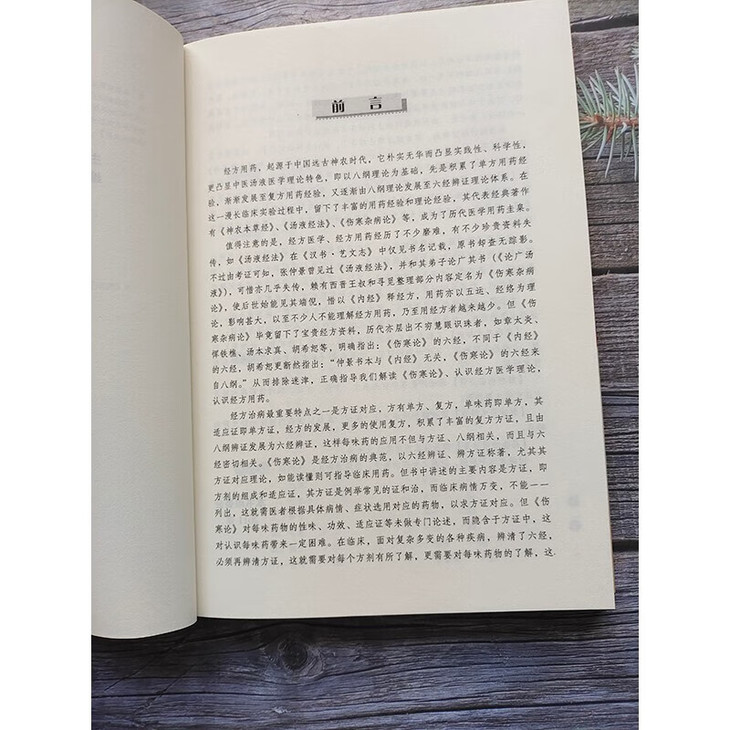 前 言
经方用药，起源于中国远古神农时代，它朴实无华而凸显实践性、科学性，
更凸显中医汤液医学理论特色，即以八纲理论为基础，先是积累了单方用药经
验，渐渐发展至复方用药经验，又逐渐由八纲理论发展至六经辨证理论体系。在
这一漫长临床实验过程中，留下了丰富的用药经验和理论经验，其代表经典著作
有《神农本草经》、《汤液经法》、《伤寒杂病论》等，成为了历代医学用药圭臬。
值得注意的是，经方医学、经方用药经历了不少磨难，有不少珍贵资料失
传，如《汤液经法》在《汉书·艺文志》中仅见书名记载，原书却杳无踪影。
不过由考证可知，张仲景曾见过《汤液经法》，并和其弟子论广其书（《论广汤
液》），可惜亦几乎失传，赖有西晋王叔和寻觅整理部分内容定名为《伤寒杂病
论》，使后世始能见其端倪，惜以《内经》释经方，用药亦以五运、经络为理
论，影响甚大，以至不少人不能理解经方用药，乃至用经方者越来越少。但《伤
寒杂病论》毕竟留下了宝贵经方资料，历代亦层出不穷慧眼识珠者，如章太炎、
恽铁樵、汤本求真、胡希恕等，明确指出：《伤寒论》的六经，不同于《内经》
的六经，胡希恕更断然指出：“仲景书本与《内经》无关，《伤寒论》的六经来
自八纲。”从而排除迷津，正确指导我们解读《伤寒论》、认识经方医学理论，
认识经方用药。
经方治病最重要特点之一是方证对应，方有单方、复方，单味药即单方，其
适应证即单方证，经方的发展，更多的使用复方，积累了丰富的复方方证，且由
八纲辨证发展为六经辨证，这样每味药的应用不但与方证、八纲相关，而且与六
经密切相关。《伤寒论》是经方治病的典范，以六经辨证、辨方证称著，尤其其
方证对应理论，如能读懂则可指导临床用药。但书中讲述的主要内容是方证，即
方剂的组成和适应证，其方证是例举常见的证和治，而临床病情万变，不能一一
列出，这就需医者根据具体病情、症状选用对应的药物，以求方证对应。但《伤
寒论》对每味药物的性味、功效、适应证等未做专门论述，而隐含于方证中，这
对认识每味药带来一定困难。在临床，面对复杂多变的各种疾病，辨清了六经，
必须再辨清方证，这就需要对每个方剂有所了解，更需要对每味药物的了解，这